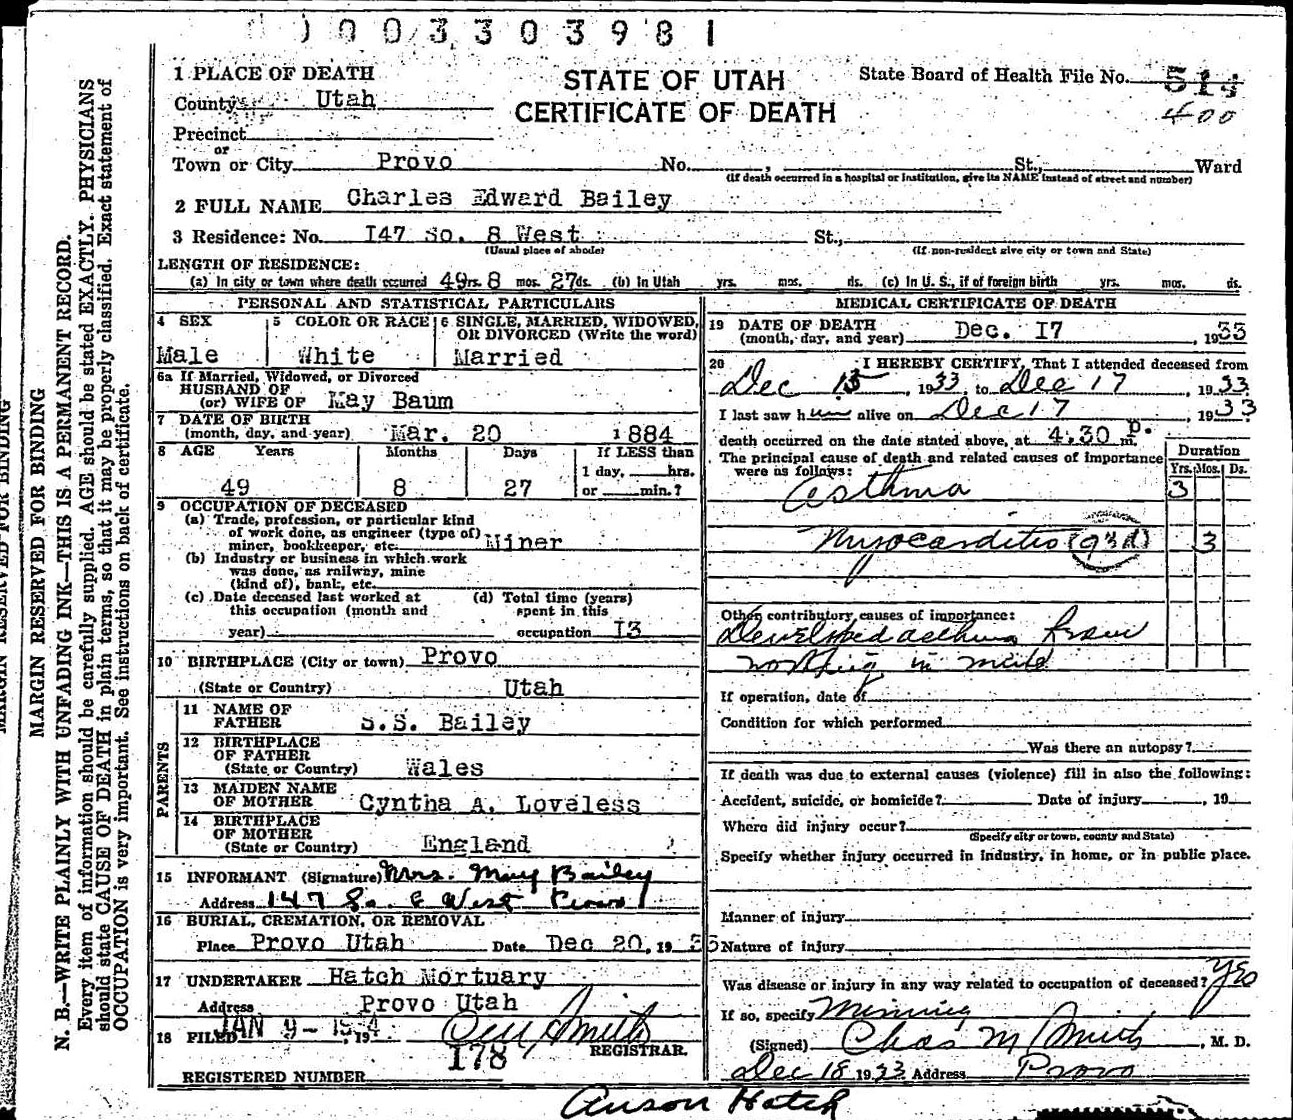 003303981
1 PLACE OF DEATH
STATE OF UTAH
State Board of Health File No. 514
County Utah
CERTIFICATE OF DEATH
400
Precinct
or
Town or City Provo No. , St., Ward
(If death occurred in a hospital or institution, give its NAME instead of street and number)
2 FULL NAME Charles Edward Bailey
3 Residence: No. I47 So. 8 West St.,
(Usual place of abode) (If non-resident give city or town and State)
LENGTH OF RESIDENCE:
(a) In city or town where death occurred 49 yrs. 8 mos. 27 ds. (b) In Utah yrs. mos. ds. (c) In U. S., if of foreign birth yrs. mos. ds.
PERSONAL AND STATISTICAL PARTICULARS
4 SEX
Male
5 COLOR OR RACE
White
6 SINGLE, MARRIED, WIDOWED,
OR DIVORCED (Write the word)
Married
6a If Married, Widowed, or Divorced
HUSBAND OF
(or) WIFE OF May Baum
7 DATE OF BIRTH
(month, day, and year) Mar. 20 1884
8 AGE Years Months Days If LESS than
1 day, hrs.
49 8 27 or min.?
9 OCCUPATION OF DECEASED
(a) Trade, profession, or particular kind
of work done, as engineer (type of)
miner, bookkeeper, etc. Miner
(b) Industry or business in which work
was done, as railway, mine
(kind of), bank, etc.
(c) Date deceased last worked at (d) Total time (years)
this occupation (month and spent in this
year) occupation I3
10 BIRTHPLACE (City or town) Provo
(State or Country) Utah
PARENTS
11 NAME OF
FATHER S.S. Bailey
12 BIRTHPLACE
OF FATHER
(State or Country) Wales
13 MAIDEN NAME
OF MOTHER Cyntha A. Loveless
14 BIRTHPLACE
OF MOTHER
(State or Country) England
15 INFORMANT (Signature) Mrs. May Bailey
Address 147 So. 8 West Provo
16 BURIAL, CREMATION, OR REMOVAL
Place Provo Utah Date Dec 20, 19 33
17 UNDERTAKER Hatch Mortuary
Address Provo Utah
18 FILED JAN 9 - 1934, 19
REGISTRAR.
178
REGISTERED NUMBER
MEDICAL CERTIFICATE OF DEATH
19 DATE OF DEATH
(month, day, and year) Dec. I7, 1933
20 I HEREBY CERTIFY, That I attended deceased from
Dec 15, 1933, to Dec 17, 1933
I last saw him alive on Dec 17, 1933
death occurred on the date stated above, at 4:30 p. m.
The principal cause of death and related causes of importance
were as follows:
Duration
Yrs. Mos. Ds.
Asthma 3
Myocarditis (93d) 3
Other contributory causes of importance:
Developed asthma from
working in mine
If operation, date of
Condition for which performed
Was there an autopsy?
If death was due to external causes (violence) fill in also the following:
Accident, suicide, or homicide? Date of injury , 19
Where did injury occur?
(Specify city or town, county and State)
Specify whether injury occurred in industry, in home, or in public place.
Manner of injury
Nature of injury
Was disease or injury in any way related to occupation of deceased? Yes
If so, specify Mining
(Signed) Chas M Smith, M. D.
Dec 18 1933 Address Provo
Anson Hatch
MARGIN RESERVED FOR BINDING
MARGIN RESERVED FOR BINDING
N. B.—WRITE PLAINLY WITH UNFADING INK—THIS IS A PERMANENT RECORD.
Every item of information should be carefully supplied. AGE should be stated EXACTLY. PHYSICIANS
should state CAUSE OF DEATH in plain terms, so that it may be properly classified. Exact statement of
OCCUPATION is very important. See instructions on back of certificate.